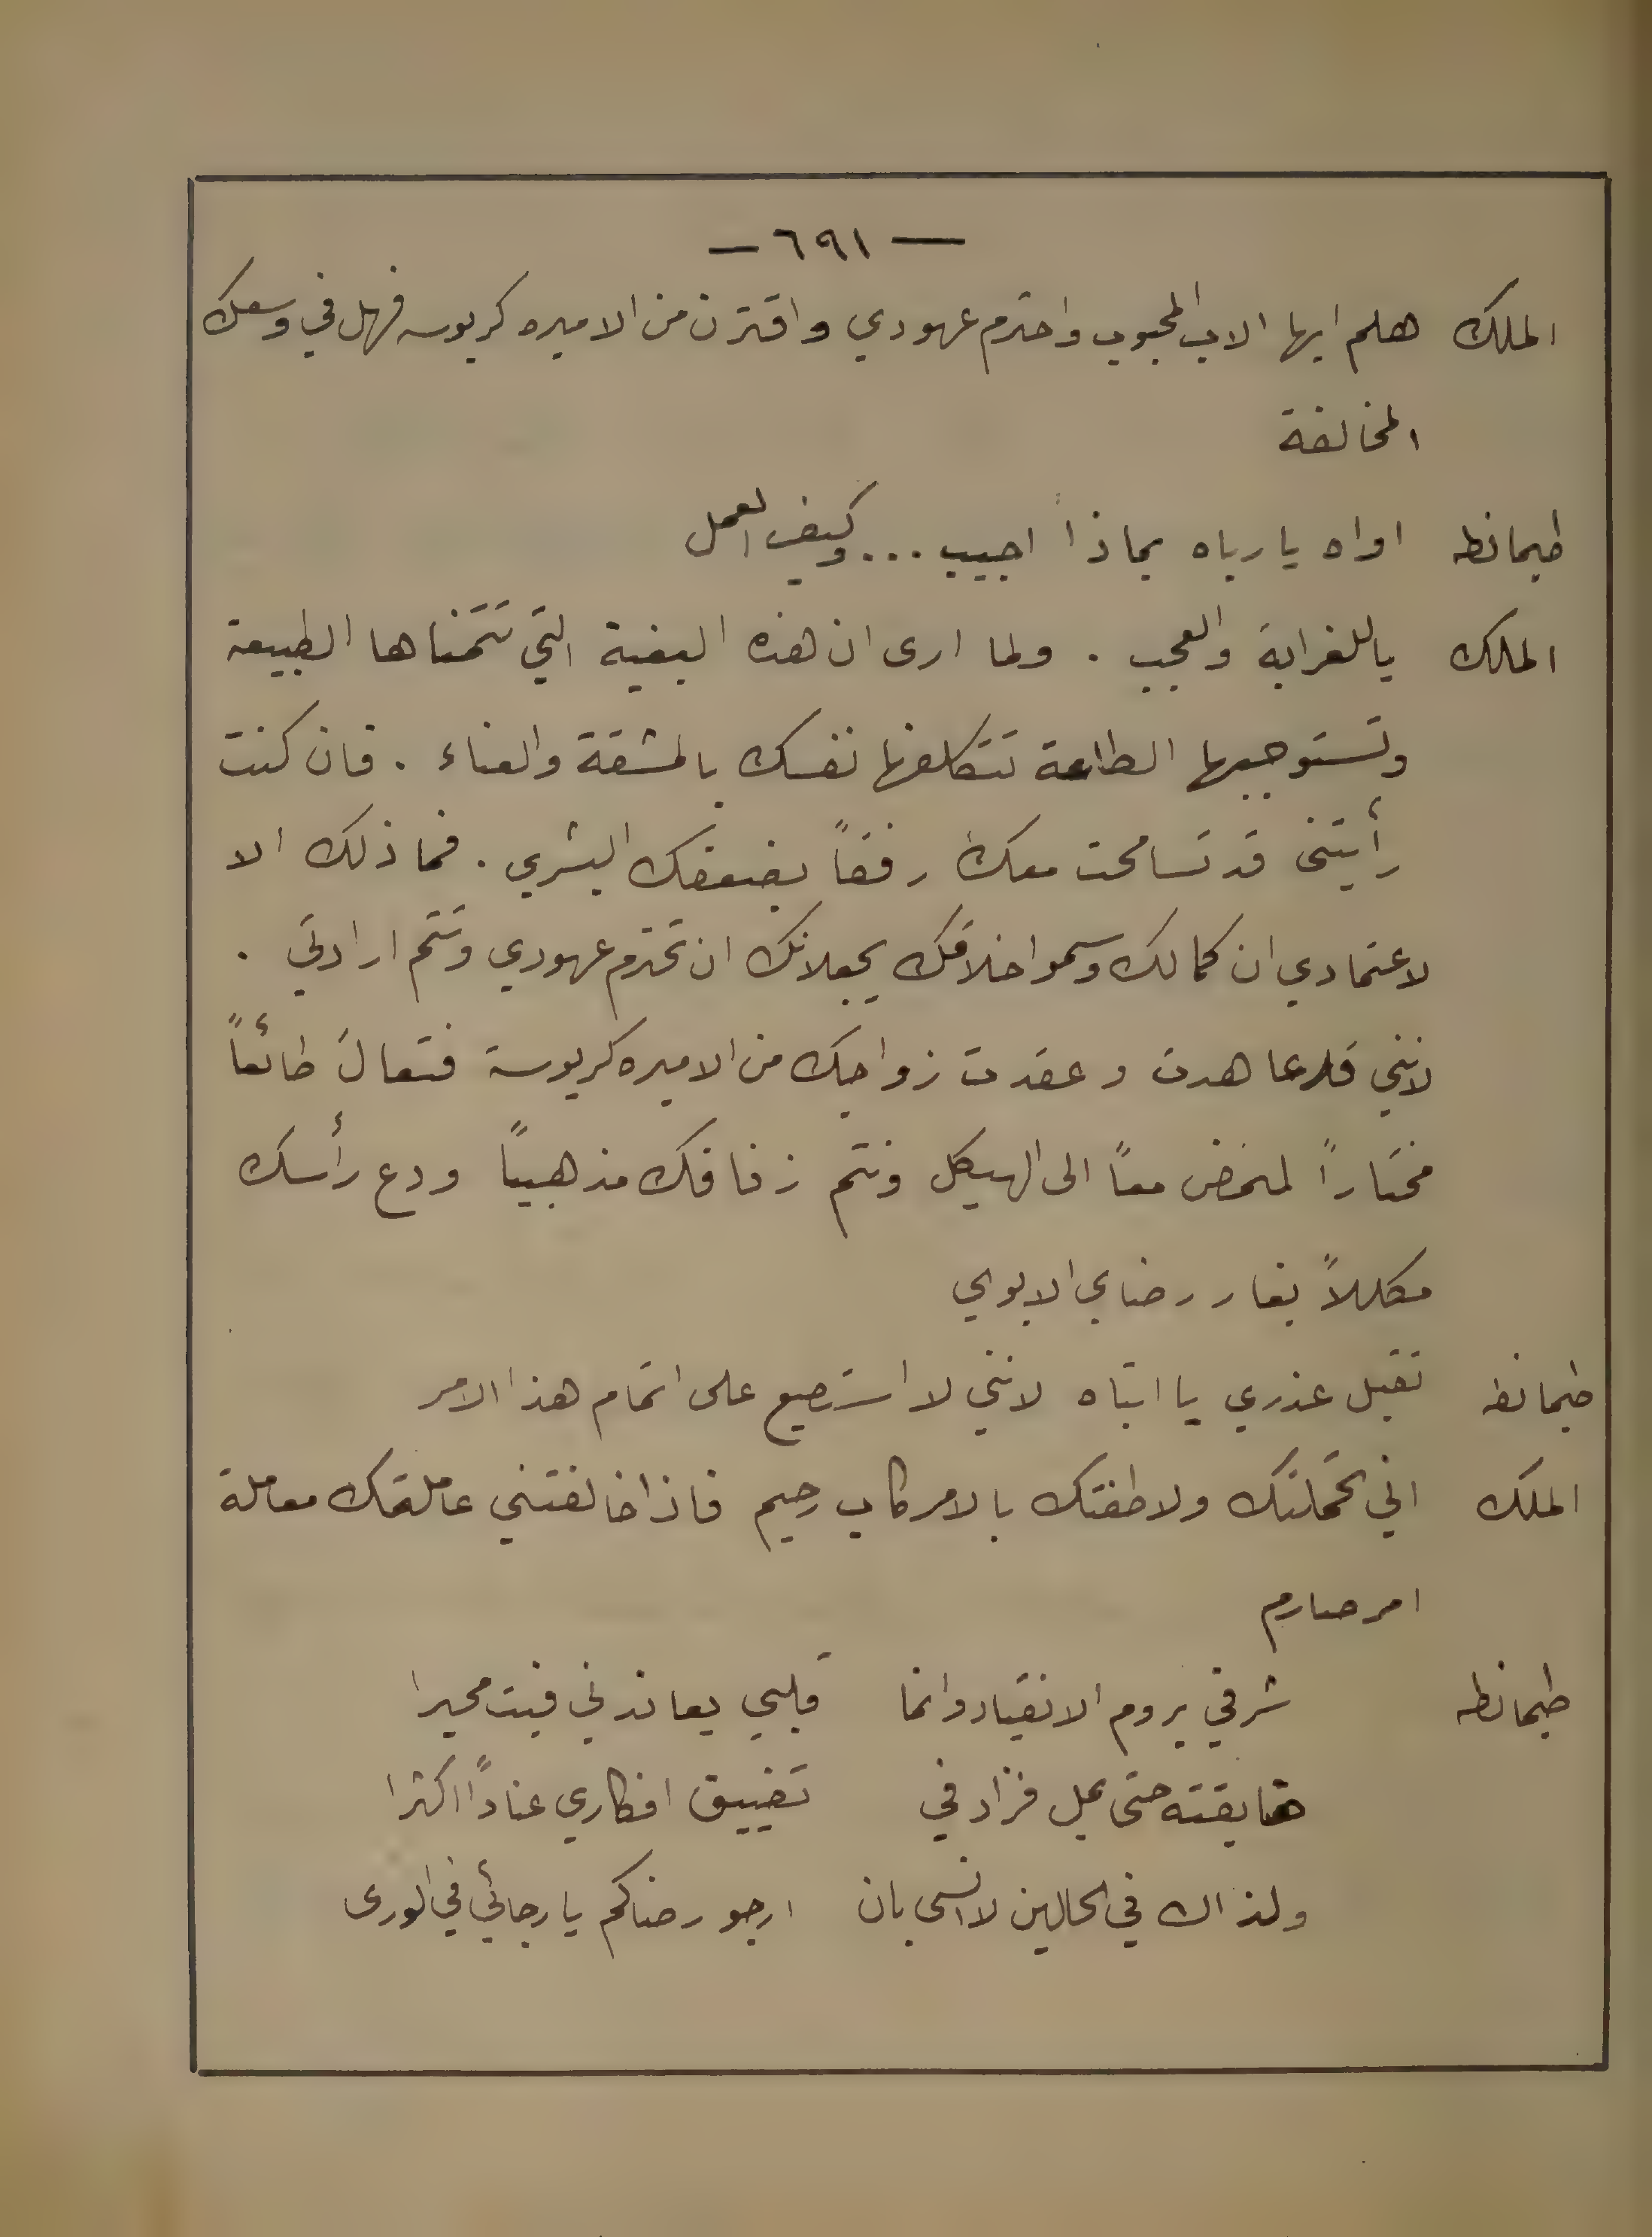 — ٦٩١ —
الملك هلم ايها الاب المحبوب واحترم عهودي واقترن من الاميره كريوسه فهل في وسعك
المخالفة
طيمانطه اواه يا رباه بماذا اجيب ... وكيف العمل
الملك ياللغرابة والعجب . ولما ارى ان هذه البغية التي تتمناها الطبيعة
وتستوجبها الطاعة تتكلفها نفسك بالمشقة والعناء . فان كنت
رأيتني قد تسامحت معك رفقاً بضعفك البشري . فما ذلك الا
لاعتمادي ان كمالك وسمو اخلاقك يجعلانك ان تحترم عهودي وتتم ارادتي .
لانني قد عاهدت وعقدت زواجك من الاميره كريوسة فتعال طائعاً
مختاراً لنمض معاً الى الهيكل ونتم زفافك مذهبياً ودع رأسك
مكللاً بغار رضاي الابوي
طيمانطه تقبل عذري يا ابتاه لانني لا استطيع على اتمام هذا الامر
الملك اني تحملتك ولاطفتك بالامر كاب رحيم فاذا خالفتني عاملتك معاملة
امر صارم
طيمانطه شرفي يروم الانقياد وانما قلبي يعاندني فبت محيرا
ضايقته حتى يمل فزاد في تضييق افكاري عناداً اكثرا
ولذاك في الحالين لا انسى بان ارجو رضاكم يا رجائي في الورى